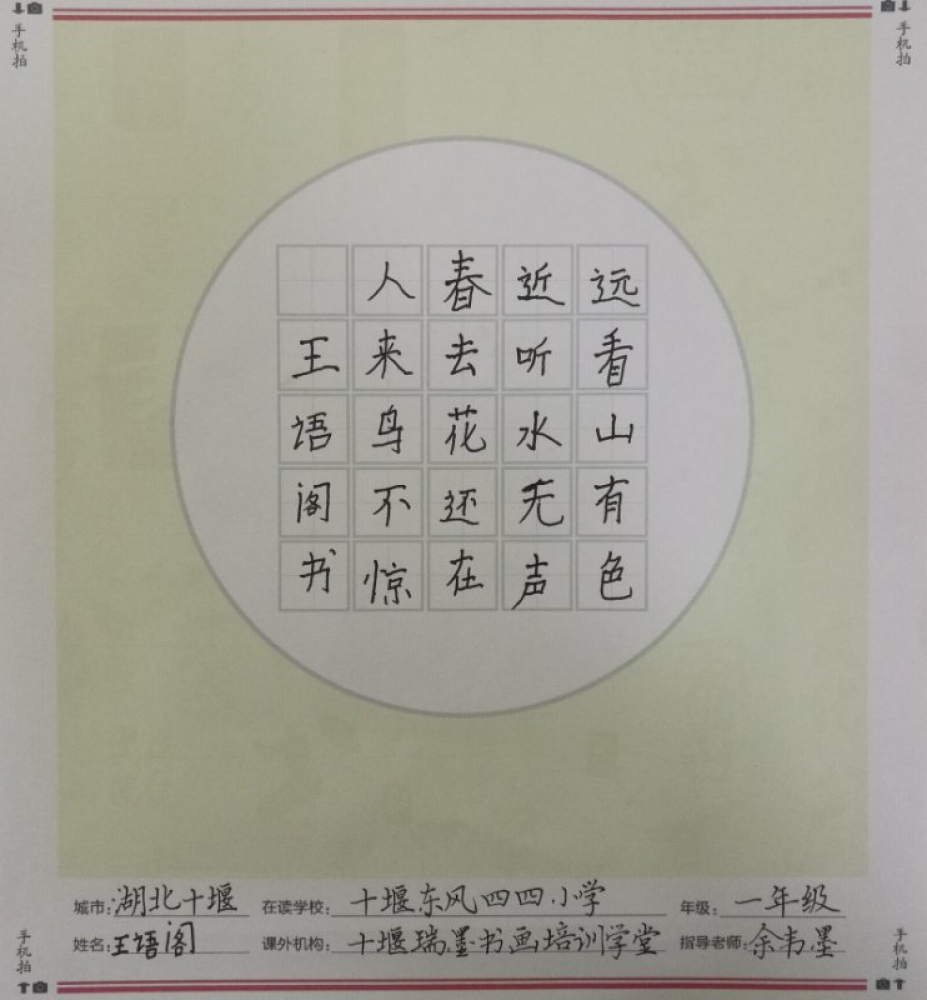 手机拍
手机拍
远看山有色
近听水无声
春去花还在
人来鸟不惊
王语阁书
城市:湖北十堰 在读学校:十堰东风四四小学 年级:一年级
姓名:王语阁 课外机构:十堰瑞墨书画培训学堂 指导老师:余韦墨
手机拍
手机拍